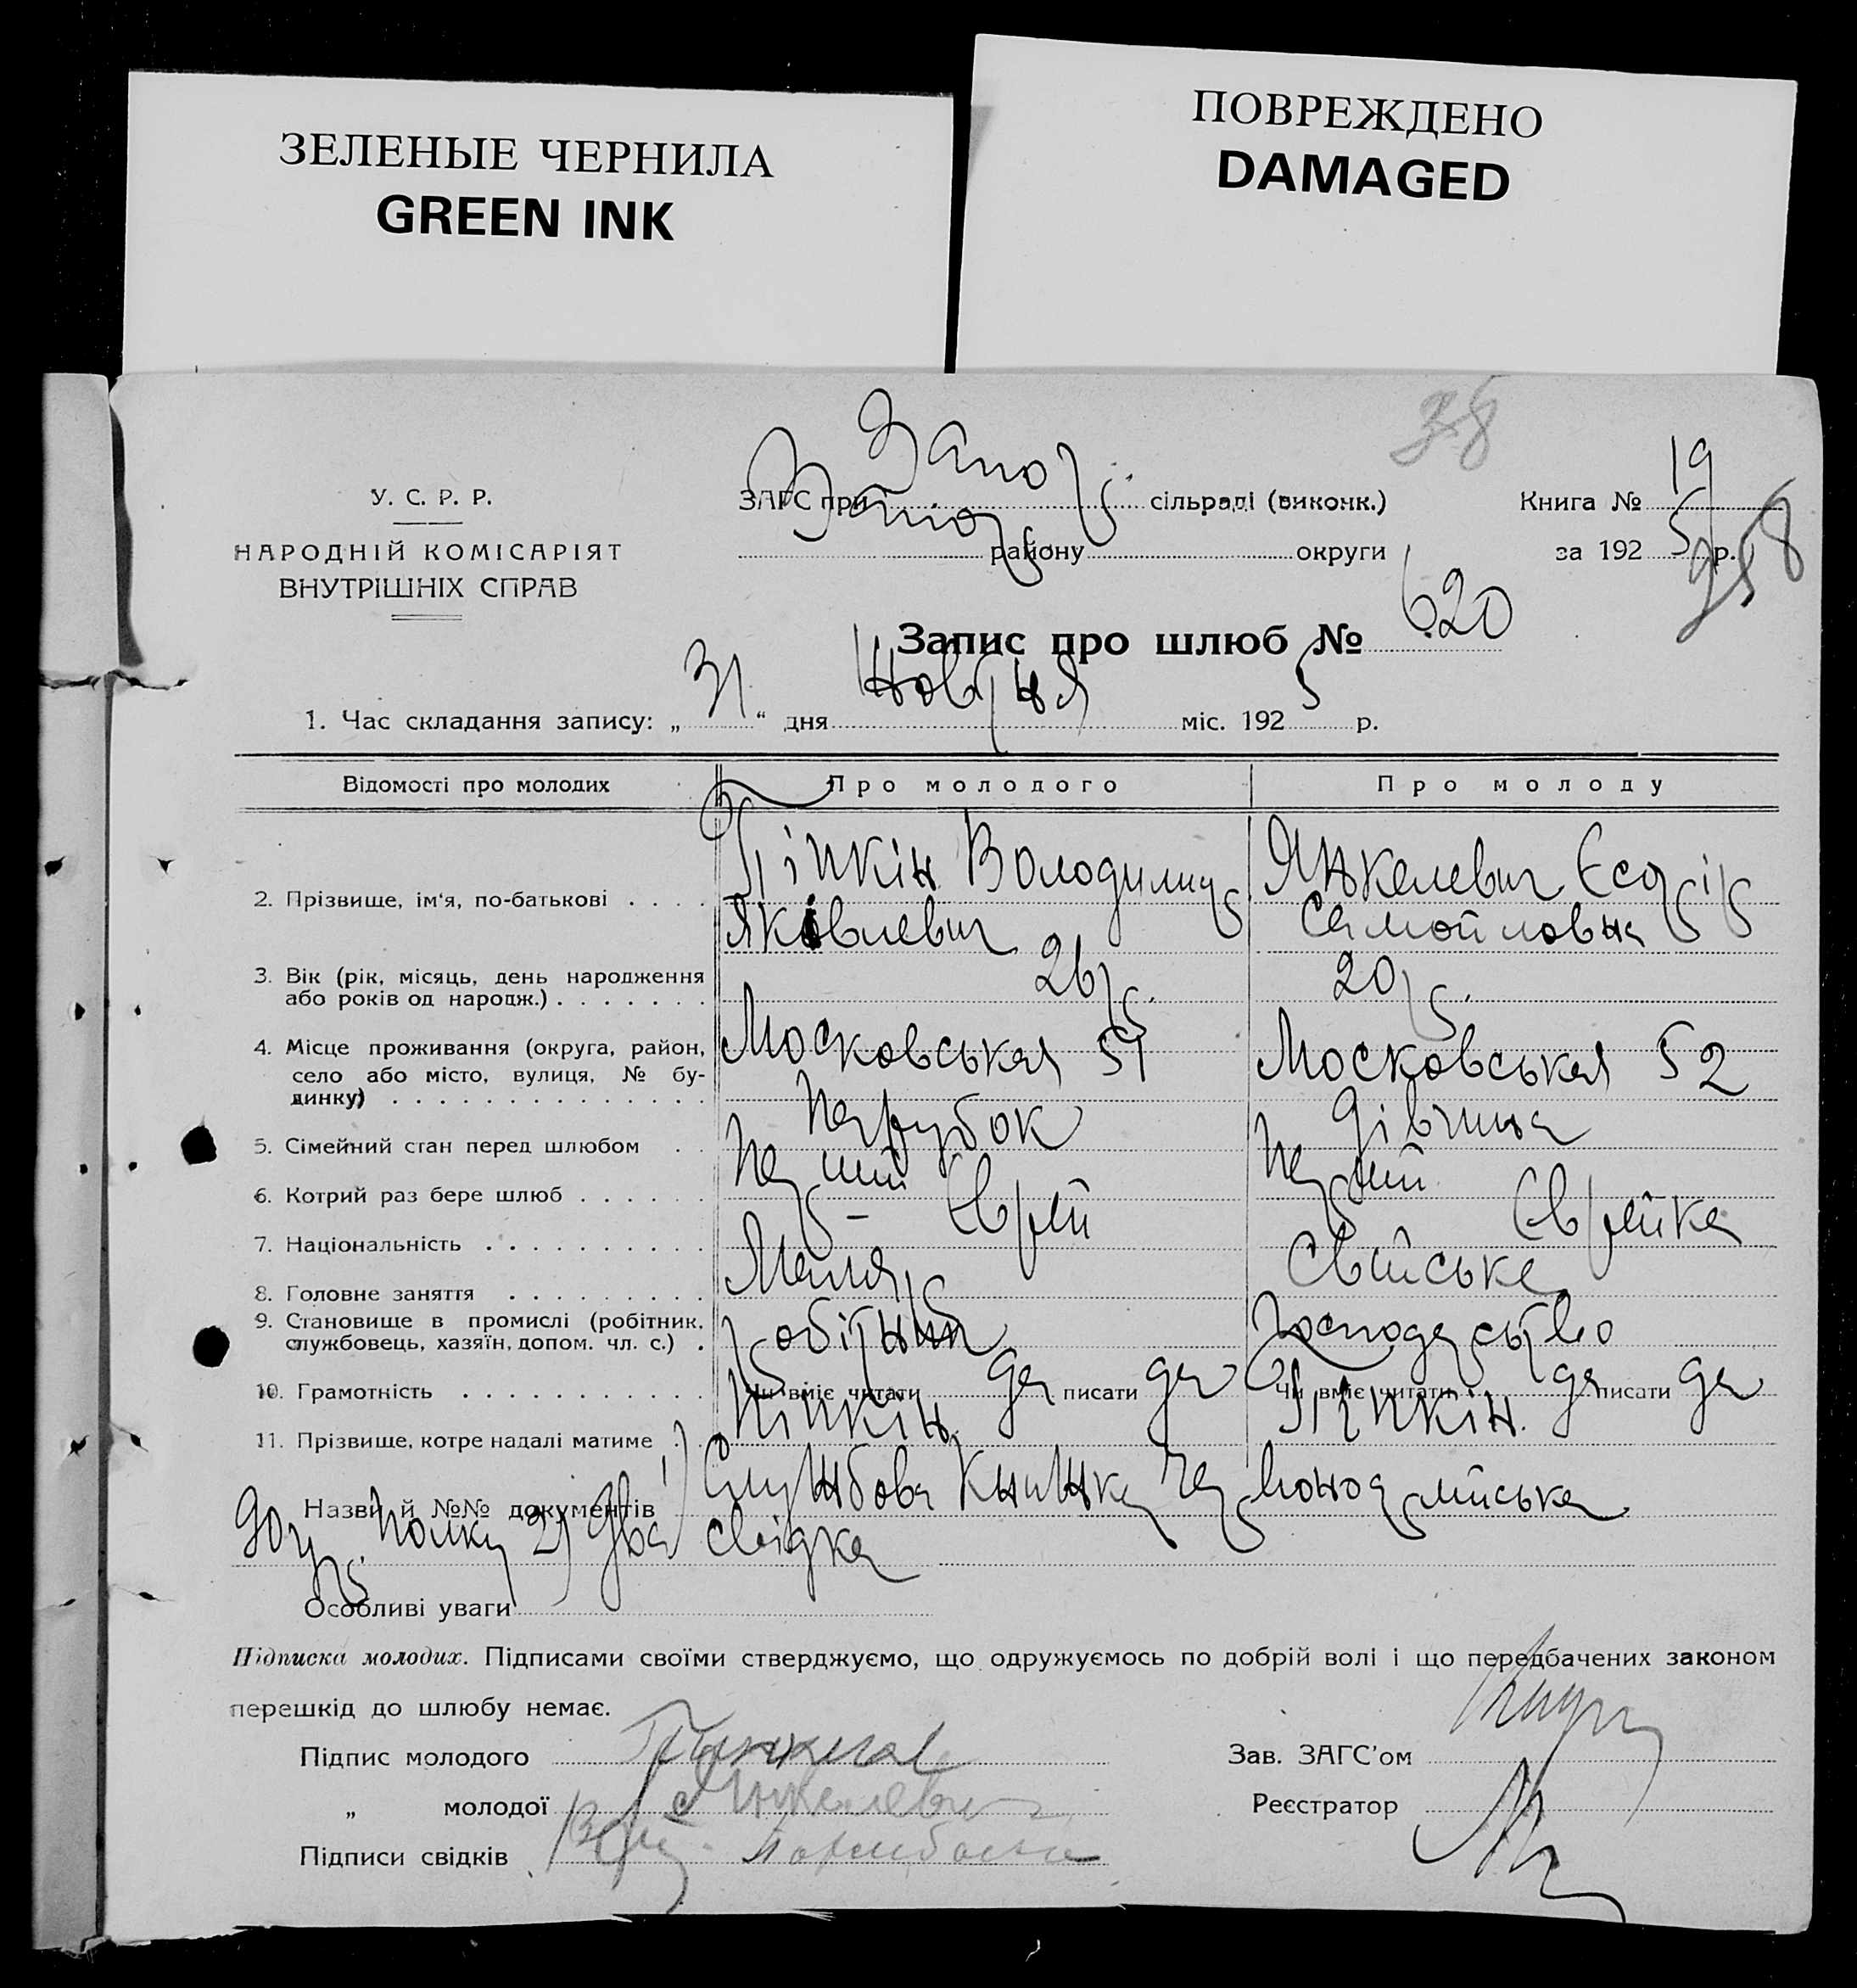 ЗЕЛЕНЫЕ ЧЕРНИЛА
GREEN INK
ПОВРЕЖДЕНО
DAMAGED
38
У. С. Р. Р.
НАРОДНІЙ КОМІСАРІЯТ
ВНУТРІШНІХ СПРАВ
ЗАГС при Запор. сільраді (виконк.)
Запор району округи
Книга № 19
за 192 5 р.
258
Запис про шлюб № 620
1. Час складання запису: „ 31 “ дня Жовтня міс. 192 5 р.
Відомості про молодих Про молодого Про молоду
2. Прізвище, ім'я, по-батькові Піпкін Володимир Янкелевич
Яковлевич Самойловна
3. Вік (рік, місяць, день народження 26 р. 20 р.
або років од народж.)
4. Місце проживання (округа, район, Московськая 51 Московськая 52
село або місто, вулиця, № бу-
динку)
5. Сімейний стан перед шлюбом Парубок Дівчина
6. Котрий раз бере шлюб Перший Перший
7. Національність Єврей Єврейка
8. Головне заняття Маляр Свійське
9. Становище в промислі (робітник, робітник господарство
службовець, хазяїн, допом. чл. с.)
10. Грамотність Чи вміє читати да писати да Чи вміє читати да писати да
11. Прізвище, котре надалі матиме Піпкін Піпкін.
Назви й №№ документів 1) Службова Книжка Червоноармійська
90 полку 2) Два свідка
Особливі уваги
Підписка молодих. Підписами своїми стверджуємо, що одружуємось по добрій волі і що передбачених законом
перешкід до шлюбу немає.
Підпис молодого
„ молодої Янкелевич
Підписи свідків
Зав. ЗАГС'ом
Реєстратор